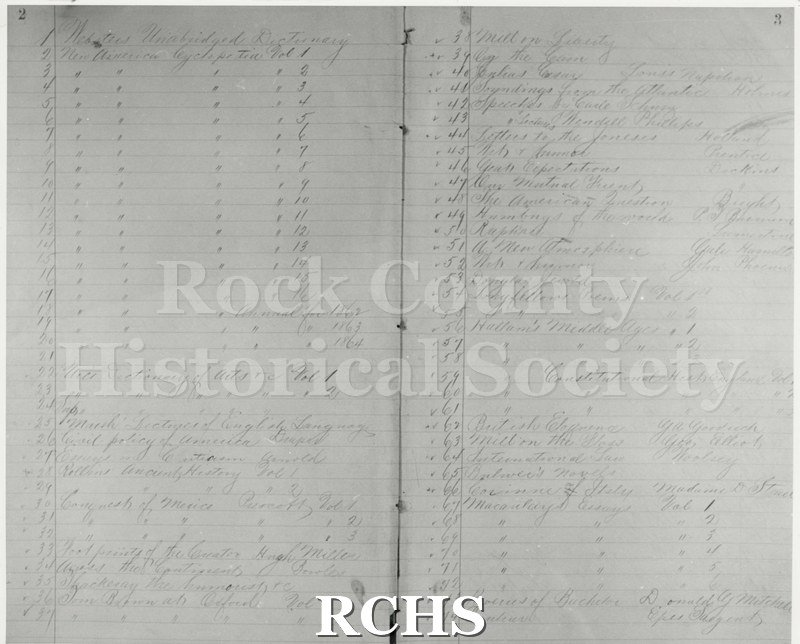 2
1 Websters Unabridged Dictionary
2 New America Cyclopedia Vol 1
3 " " " " 2
4 " " " " 3
5 " " " " 4
6 " " " " 5
7 " " " " 6
8 " " " " 7
9 " " " " 8
10 " " " " 9
11 " " " " 10
12 " " " " 11
13 " " " " 12
14 " " " " 13
15 " " " " 14
16 " " " " 15
17
18 " " " Annual for 1862
19 " " " " 1863
20 1864
21
22 Dictionary of Arts &c Vol 1
23 " " " " 2
24
25 Marsh Lectures of English Language
26 Civil policy of America Draper
27 Essays in Criticism Arnold
28 Rollins Ancient History Vol 1
29 " " " " 2
30 Conquest of Mexico Prescott Vol 1
31 " " " " 2
32 " " " " 3
33 Foot prints of the Creator Hugh Miller
34 Across the Continent Bowles
35 Thackeray the humorist &c
36 Tom Brown at Oxford Vol
37 " " " "
3
38 Mill on Liberty
39 the
40 Julius Cesar Louis Napoleon
41 Soundings from the Atlantic Holmes
42 Speeches by Carl Schurz
43 " Lectures Wendell Phillips
44 Letters to the Joneses Holland
45 Wit & Humor Prentice
46 Great Expectations Dickins
47 Our Mutual Friend
48 The American Question Bright
49 Humbugs of the world P T Barnum
50
51 A New Atmosphere Gale Hamilton
52 John Phoenix
53
54 Longfellows Poems Vol 1
55 " " " 2
56 Hallam's Middle Ages " 1
57 " " " 2
58 " " " 3
59 " Constitutional History Vol
60 " " " 2
61 " "
62 British Eloquence GA Goodrich
63 Mill on the Floss Geo Elliot
64 International Law Woolsey
65 Bulwer's Novels
66 Corinne of Italy Madame D Stael
67 Macaulays Essays Vol 1
68 " " " 2
69 " " " 3
70 " " " 4
71 " " " 5
72 " " " 6
Reveries of Bachelor Donald G Mitchell
Epes Sargent
Rock County
Historical Society
RCHS